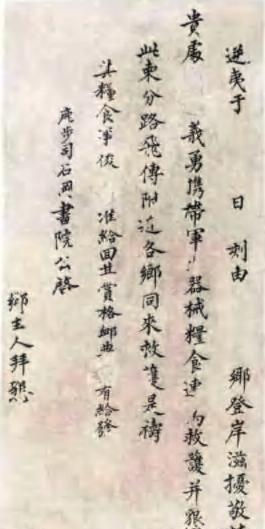 逆夷于　日　刻由　鄉登岸滋擾敬
貴處　義勇攜帶軍　器械糧食速　為救護并懇
此柬分路飛傳附近各鄉同來救護是禱
其糧食事後　准給回並賞格卹典　有給發
鹿步司石岡書院公啓
鄉主人拜懇